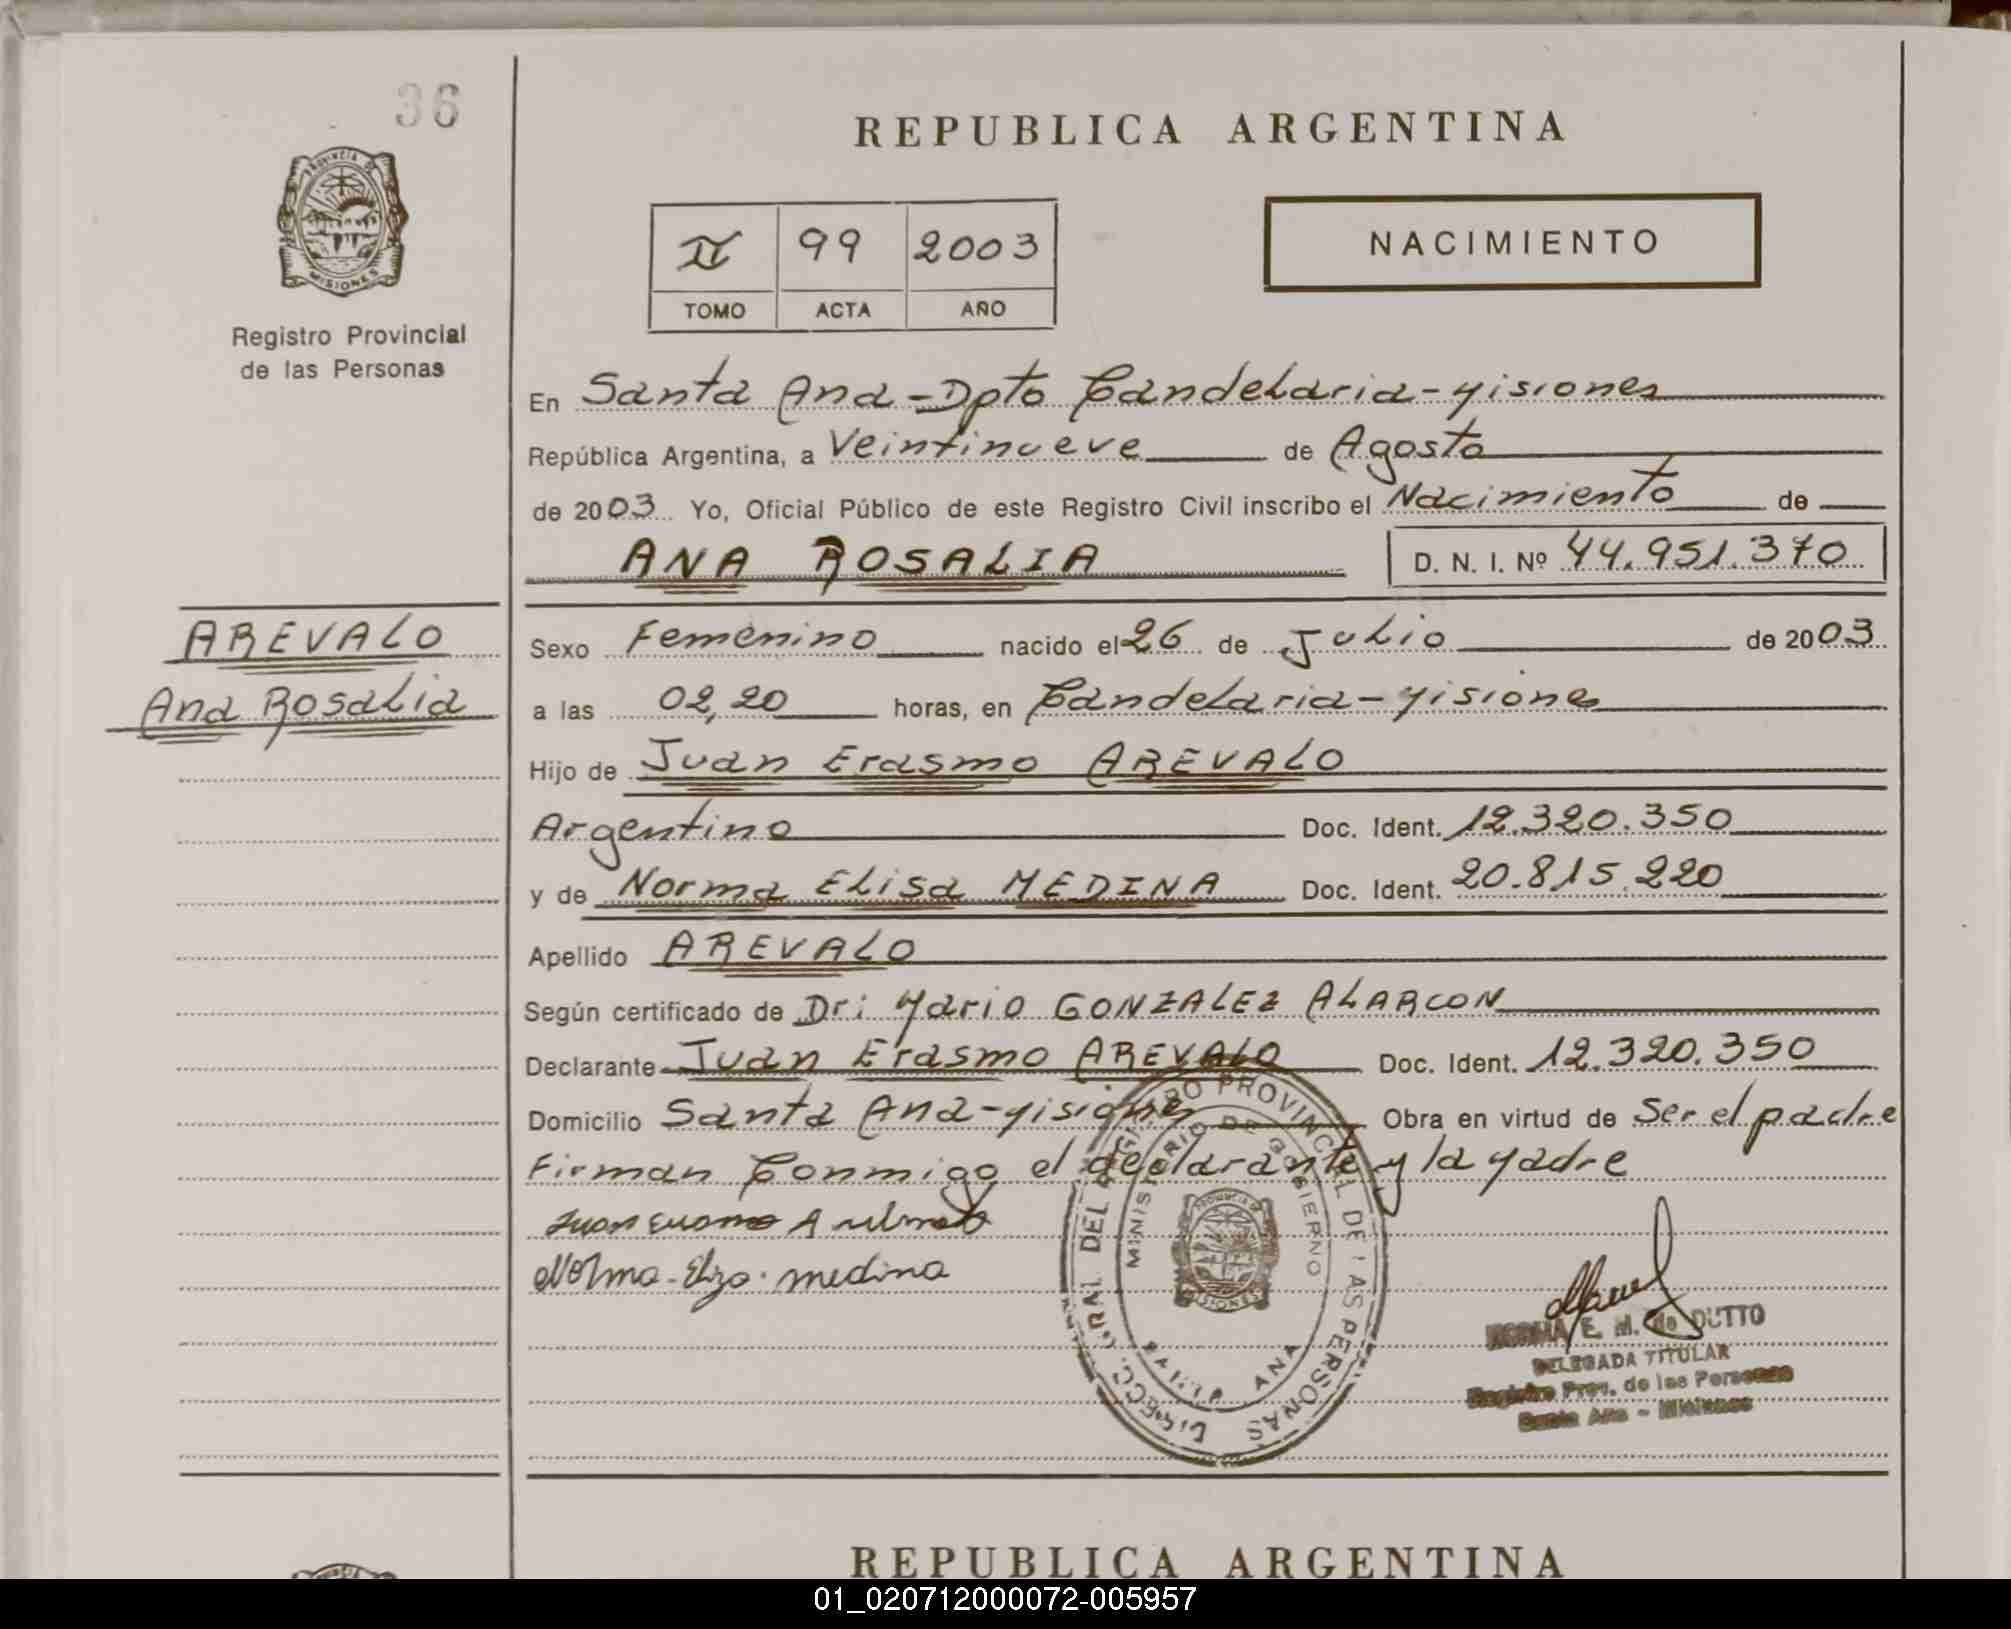 36
REPUBLICA ARGENTINA
PROVINCIA DE MISIONES
Registro Provincial
de las Personas
II 99 2003
TOMO ACTA AÑO
NACIMIENTO
En Santa Ana-Dpto Candelaria-Misiones
República Argentina, a Veintinueve de Agosto
de 2003 Yo, Oficial Público de este Registro Civil inscribo el Nacimiento de
ANA ROSALIA D. N. I. Nº 44.951.370
AREVALO
Ana Rosalia
Sexo Femenino nacido el 26 de Julio de 2003
a las 02,20 horas, en Candelaria-Misiones
Hijo de Juan Erasmo AREVALO
Argentino Doc. Ident. 12.320.350
y de Norma Elisa MEDINA Doc. Ident. 20.815.220
Apellido AREVALO
Según certificado de Dr: Mario GONZALEZ ALARCON
Declarante Juan Erasmo AREVALO Doc. Ident. 12.320.350
Domicilio Santa Ana-Misiones Obra en virtud de Ser el padre
Firman Conmigo el declarante y la Madre
Juan
Norma Eliza medina
DIRECC. GRAL. DEL REGISTRO PROVINCIAL DE LAS PERSONAS
MINISTERIO DE GOBIERNO
SANTA ANA
PROVINCIA DE MISIONES
NORMA E. M. de DUTTO
DELEGADA TITULAR
Registro Prov. de las Personas
Santa Ana - Misiones
REPUBLICA ARGENTINA
01_020712000072-005957